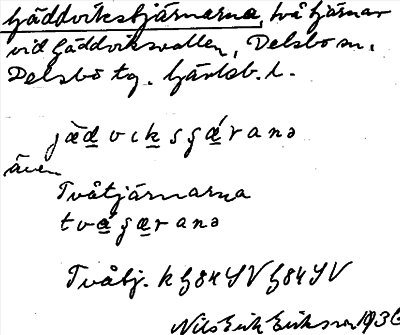 Gäddvikstjärnarna, två tjärnar
vid Gäddviksvallen, Delsbo sn,
Delsbo tg. Gävleb. l.
jä̀d v ı k s ɟæ̀r a n ə
även
Tvåtjärnarna
t v å ɟ æ r a n ə
Tvåtj.
Nils Erik Eriksson 1936